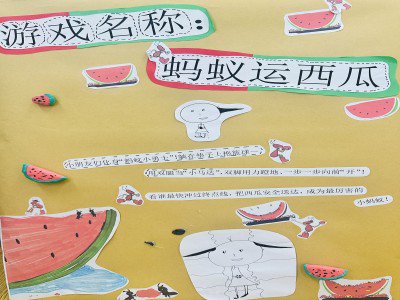 游戏名称:
蚂蚁运西瓜
小朋友们化身"蚂蚁小勇士"躺在垫子上抱紧球
用双脚当"小马达",双脚用力蹬地,一步一步向前"开"!
看谁最快冲过终点线,把西瓜安全送达,成为最厉害的
小蚂蚁!